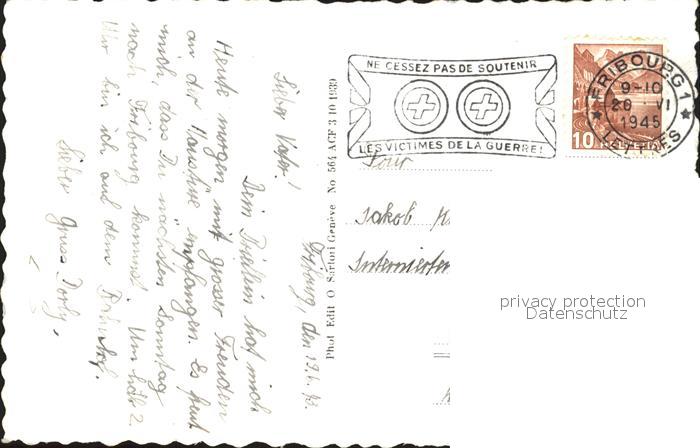 NE CESSEZ PAS DE SOUTENIR
LES VICTIMES DE LA GUERRE!
FRIBOURG 1
9-10
20 VI
1945
LETTRES
10
Jakob
privacy protection
Datenschutz
Phot Edit O Sartori Genève No 564 ACF 3 10 1939
Fribourg, den 19.6.
Lieber Vater!
Dein Brieflein hat mich
Heute morgen mit grosser Freuden
an der Haustüre empfangen. Es freut
mich dass Du nächsten Sonntag
nach Fribourg kommst. Um halb 2
Uhr bin ich auf dem Bahnhof.
Lieber Gruss